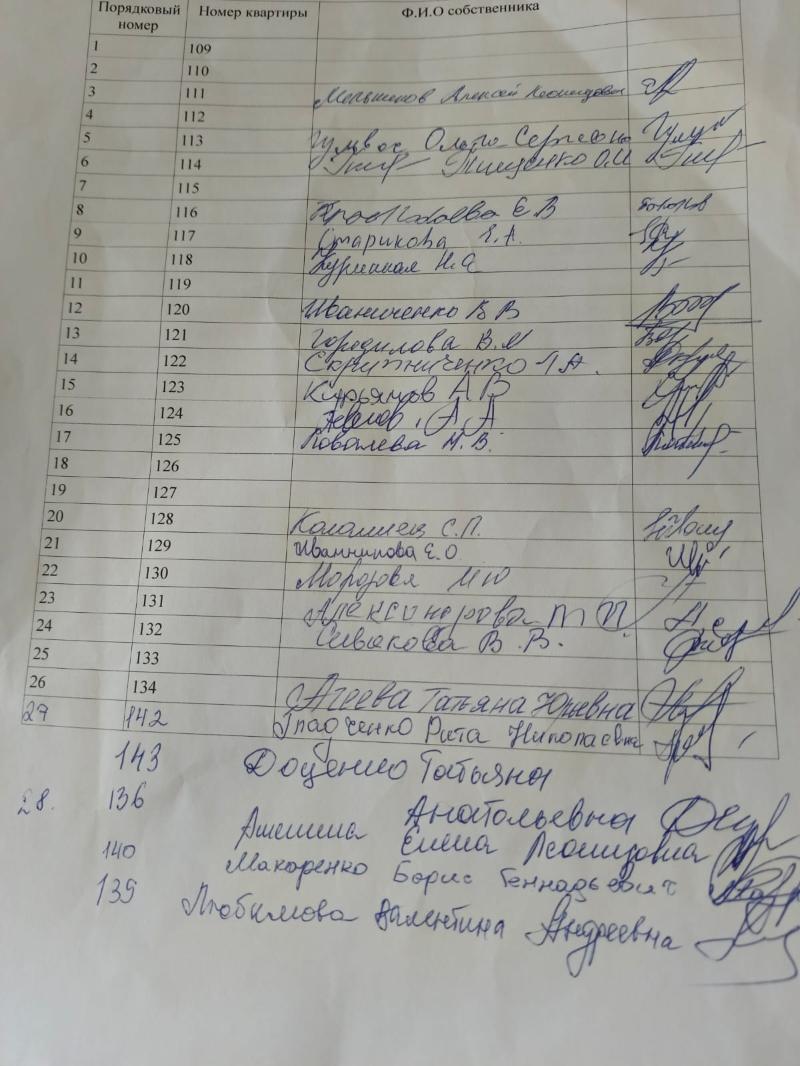 Порядковый номер Номер квартиры Ф.И.О собственника
1 109
2 110
3 111 Алексей Леонидович
4 112
5 113 Ольга Сергеевна
6 114 Тищенко О.И
7 115
8 116 Е В
9 117 Старикова Е.А.
10 118
11 119
12 120 Иваниченко В В
13 121 Горидилова В.И
14 122 Скрипниченко Л А.
15 123 Курьянов А В
16 124 А А
17 125 Ковалева Н.В.
18 126
19 127
20 128 Коломиец С.П.
21 129 Иванникова Е.О
22 130 Морозова М Ю
23 131 Александрова Т П.
24 132 Сивакова В.В.
25 133
26 134 Агеева Татьяна Юрьевна
27 142 Гладченко Рита Николаевна
143 Доценко Татьяна
Анатольевна
28. 136 Елена Леонидовна
140 Макаренко Борис Геннадьевич
139 Любимова Валентина Андреевна